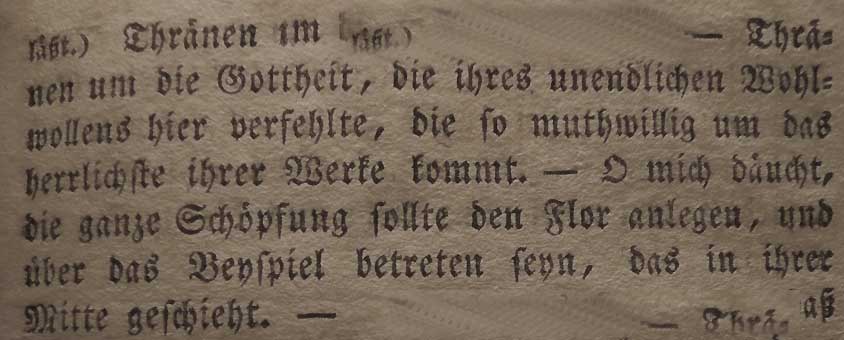 läßt.) Thränen im läßt.) — Thrä=
nen um die Gottheit, die ihres unendlichen Wohl=
wollens hier verfehlte, die so muthwillig um das
herrlichste ihrer Werke kommt. — O mich däucht,
die ganze Schöpfung sollte den Flor anlegen, und
über das Beyspiel betreten seyn, das in ihrer
Mitte geschieht. — — Thrä= aß